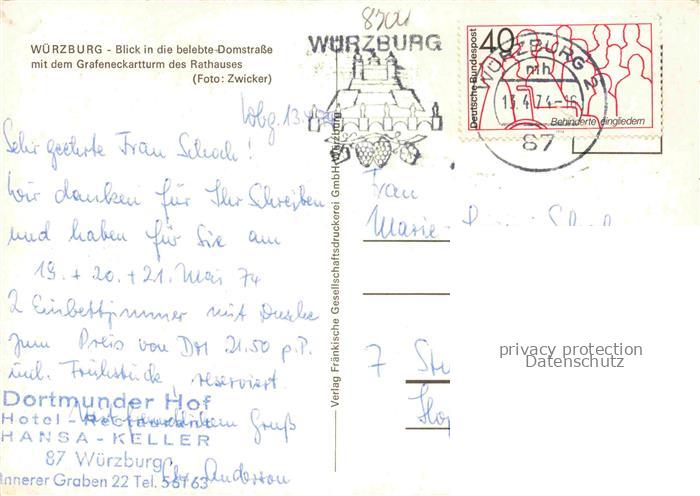 8700
WÜRZBURG - Blick in die belebte Domstraße
mit dem Grafeneckartturm des Rathauses
(Foto: Zwicker)
WÜRZBURG
Deutsche Bundespost
40
Behinderte eingliedern
WÜRZBURG 2
mh
13.4.74-16
87
Wbg. 13.4.74
Sehr geehrte Frau Schoch!
Wir danken für Ihr Schreiben
und haben für Sie am
19. + 20. + 21. Mai 74
2 Einbettzimmer mit Dusche
zum Preis von DM 21.50 p.P.
incl. Frühstück reserviert.
Mit freundlichem Gruß
Dortmunder Hof
Hotel - Restaurant
HANSA - KELLER
87 Würzburg
Innerer Graben 22 Tel. 56163
Verlag Fränkische Gesellschaftsdruckerei GmbH, Würzburg
Frau
Marie-
7 St
privacy protection
Datenschutz